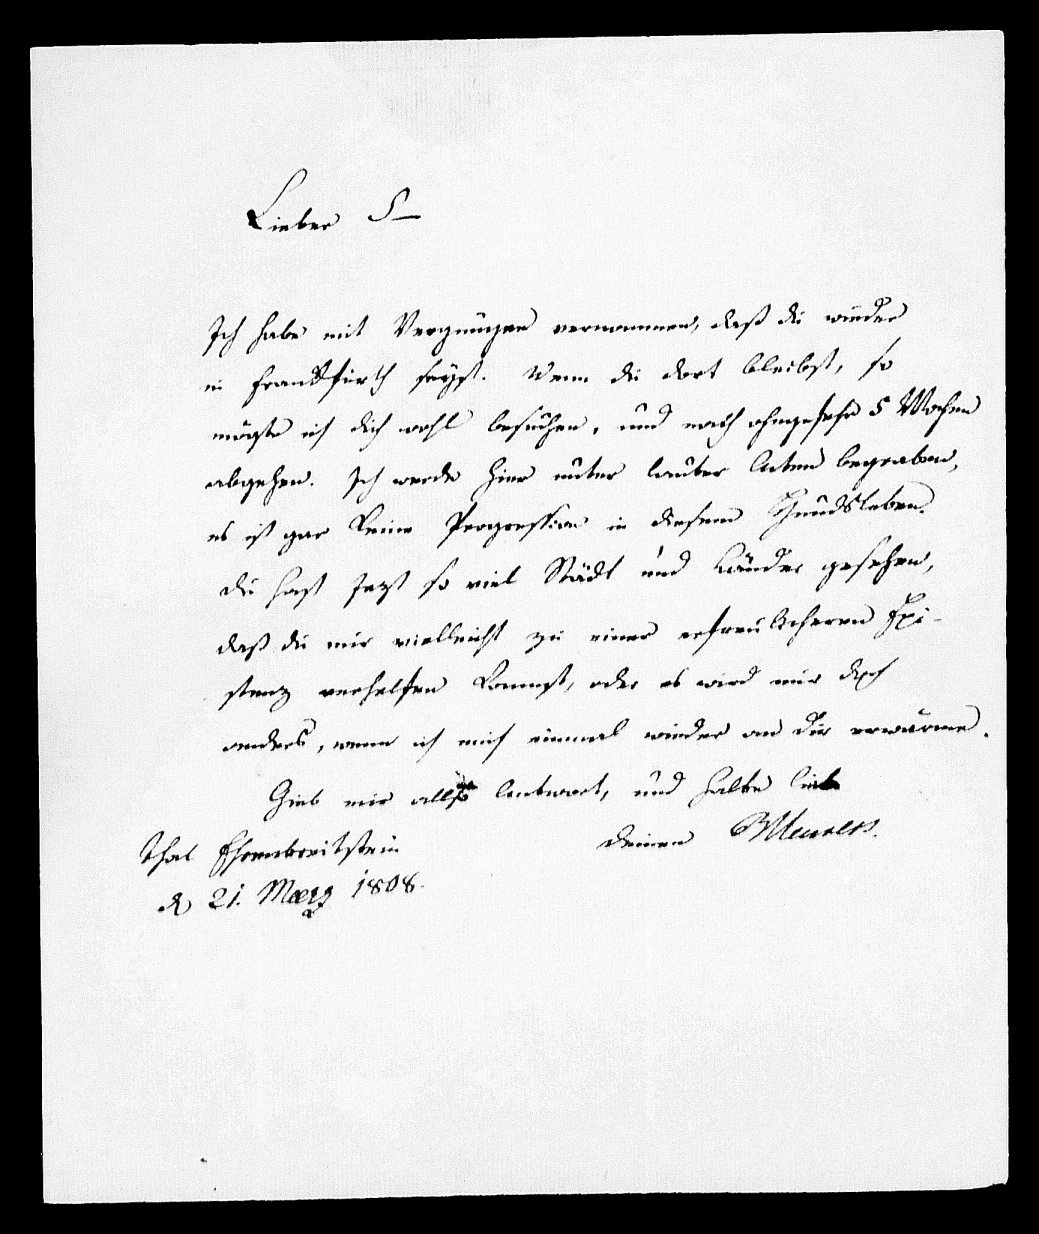 Lieber S–
Ich habe mit Vergnügen vernommen, daß du wieder
in Frankfurth seyst. Wenn du dort bleibst, so
mögte ich dich wohl besuchen, und nach ohngefehr 5 Wochen
abgehen. Ich werde hier unter lauter Acten begraben,
es ist gar keine Progression in diesem Hundsleben.
du hast jezt so viel Städt und Länder gesehen,
daß du mir vielleicht zu einer erfreulicheren Exi-
stenz verhelfen kannst, oder es wird mir doch
anders, wenn ich mich einmal wieder an dir erwärme.
Gieb mir Antwort, und halte lieb
Thal Ehrenbreitstein deinen
d 21. Maerz 1808.